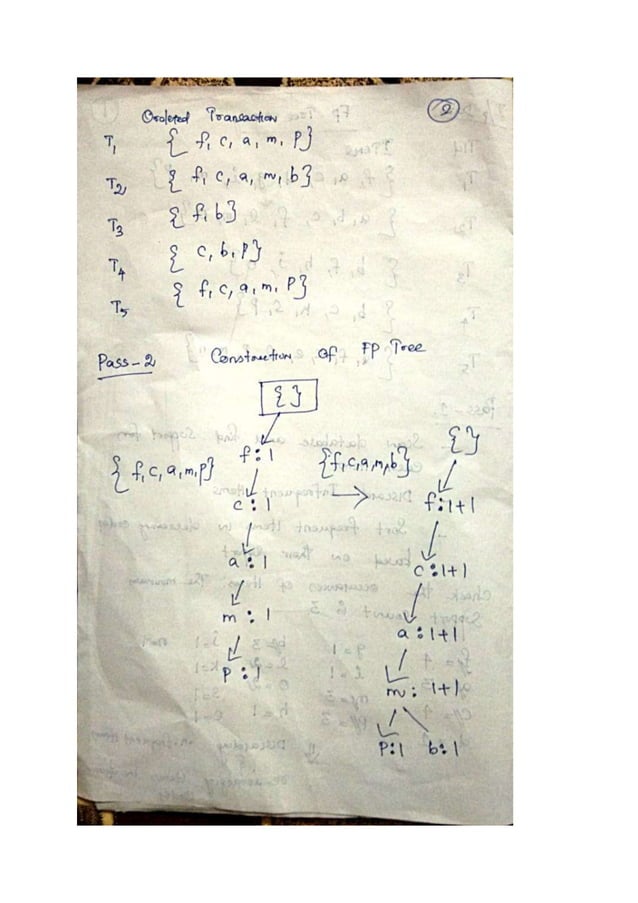 Ordered Transaction 2
T1 { f, c, a, m, p}
T2 { f, c, a, m, b}
T3 { f, b}
T4 { c, b, p}
T5 { f, c, a, m, p}
Pass-2 Construction of FP Tree
{ }
{ f, c, a, m, p}
f:1
c:1
a:1
m:1
p:1
{f, c, a, m, b}
{ }
f:1+1
c:1+1
a:1+1
m:1+1
p:1 b:1